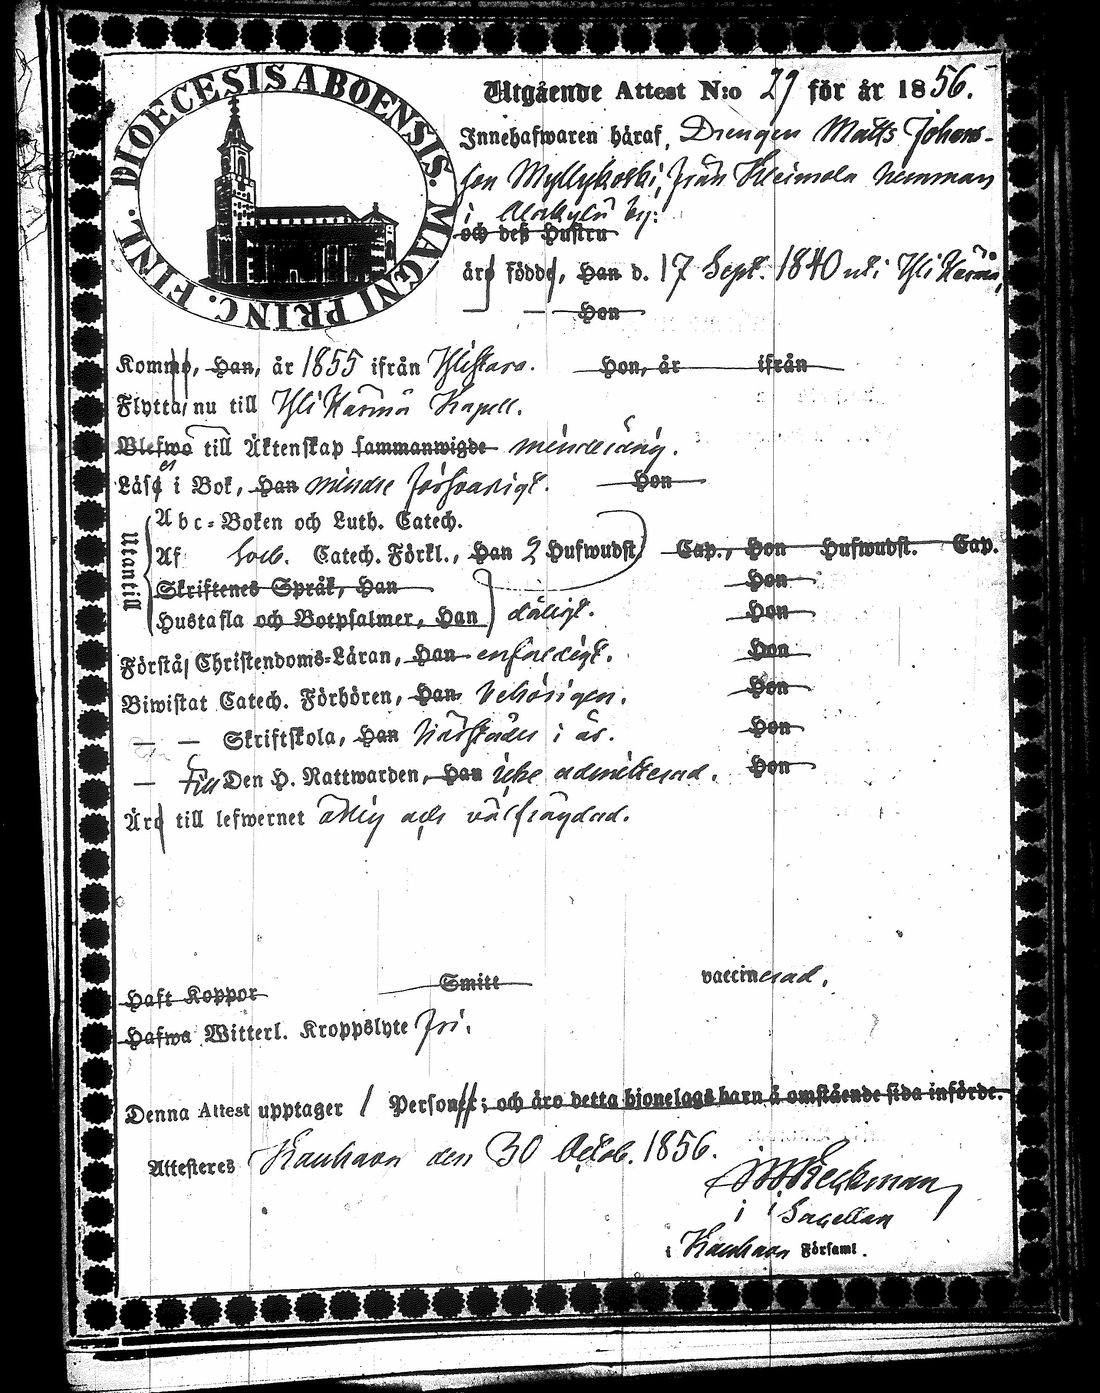 DIOECESIS ABOENSIS. MAGNI PRINC. FINL.
Utgående Attest N:o 29 för år 1856.
Innehafwaren häraf, Drengen Matts Johans-
son Myllykoski, från Heimola hemman
i Alakylä by:
och deß Hustru
äro födde, Han d. 17 Sept. 1840 uti Ylihärmä,
— — Hon
Kommo, Han, år 1855 ifrån Ylistaro. Hon, år ifrån
Flytta nu till Yli Härmä Kapell.
Blefwo till Äktenskap sammanwigde minderårig.
Läser i Bok, Han mindre försvarligt. Hon
Utantill
Abc-Boken och Luth. Catech.
Af Catech. Förkl., Han 2 Hufwudst. Cap., Hon Hufwudst. Cap.
Skriftenes Språk, Han Hon
Hustafla och Botpsalmer, Han dåligt. Hon
Förstå Christendoms-Läran, Han enfaldigt. Hon
Biwistat Catech. Förhören, Han behörigen. Hon
— — Skriftskola, Han i år. Hon
— Till Den H. Nattwarden, Han icke admitterad. Hon
Äro till lefwernet ärlig och välfrägdad.
Haft Koppor Smitt vaccinerad.
Hafwa Witterl. Kroppslyte fri.
Denna Attest upptager 1 Person; och äro detta hjonelags barn å omstående sida införde.
Attesteres Kauhava den 30 Octob. 1856.
i Kauhava Församl.